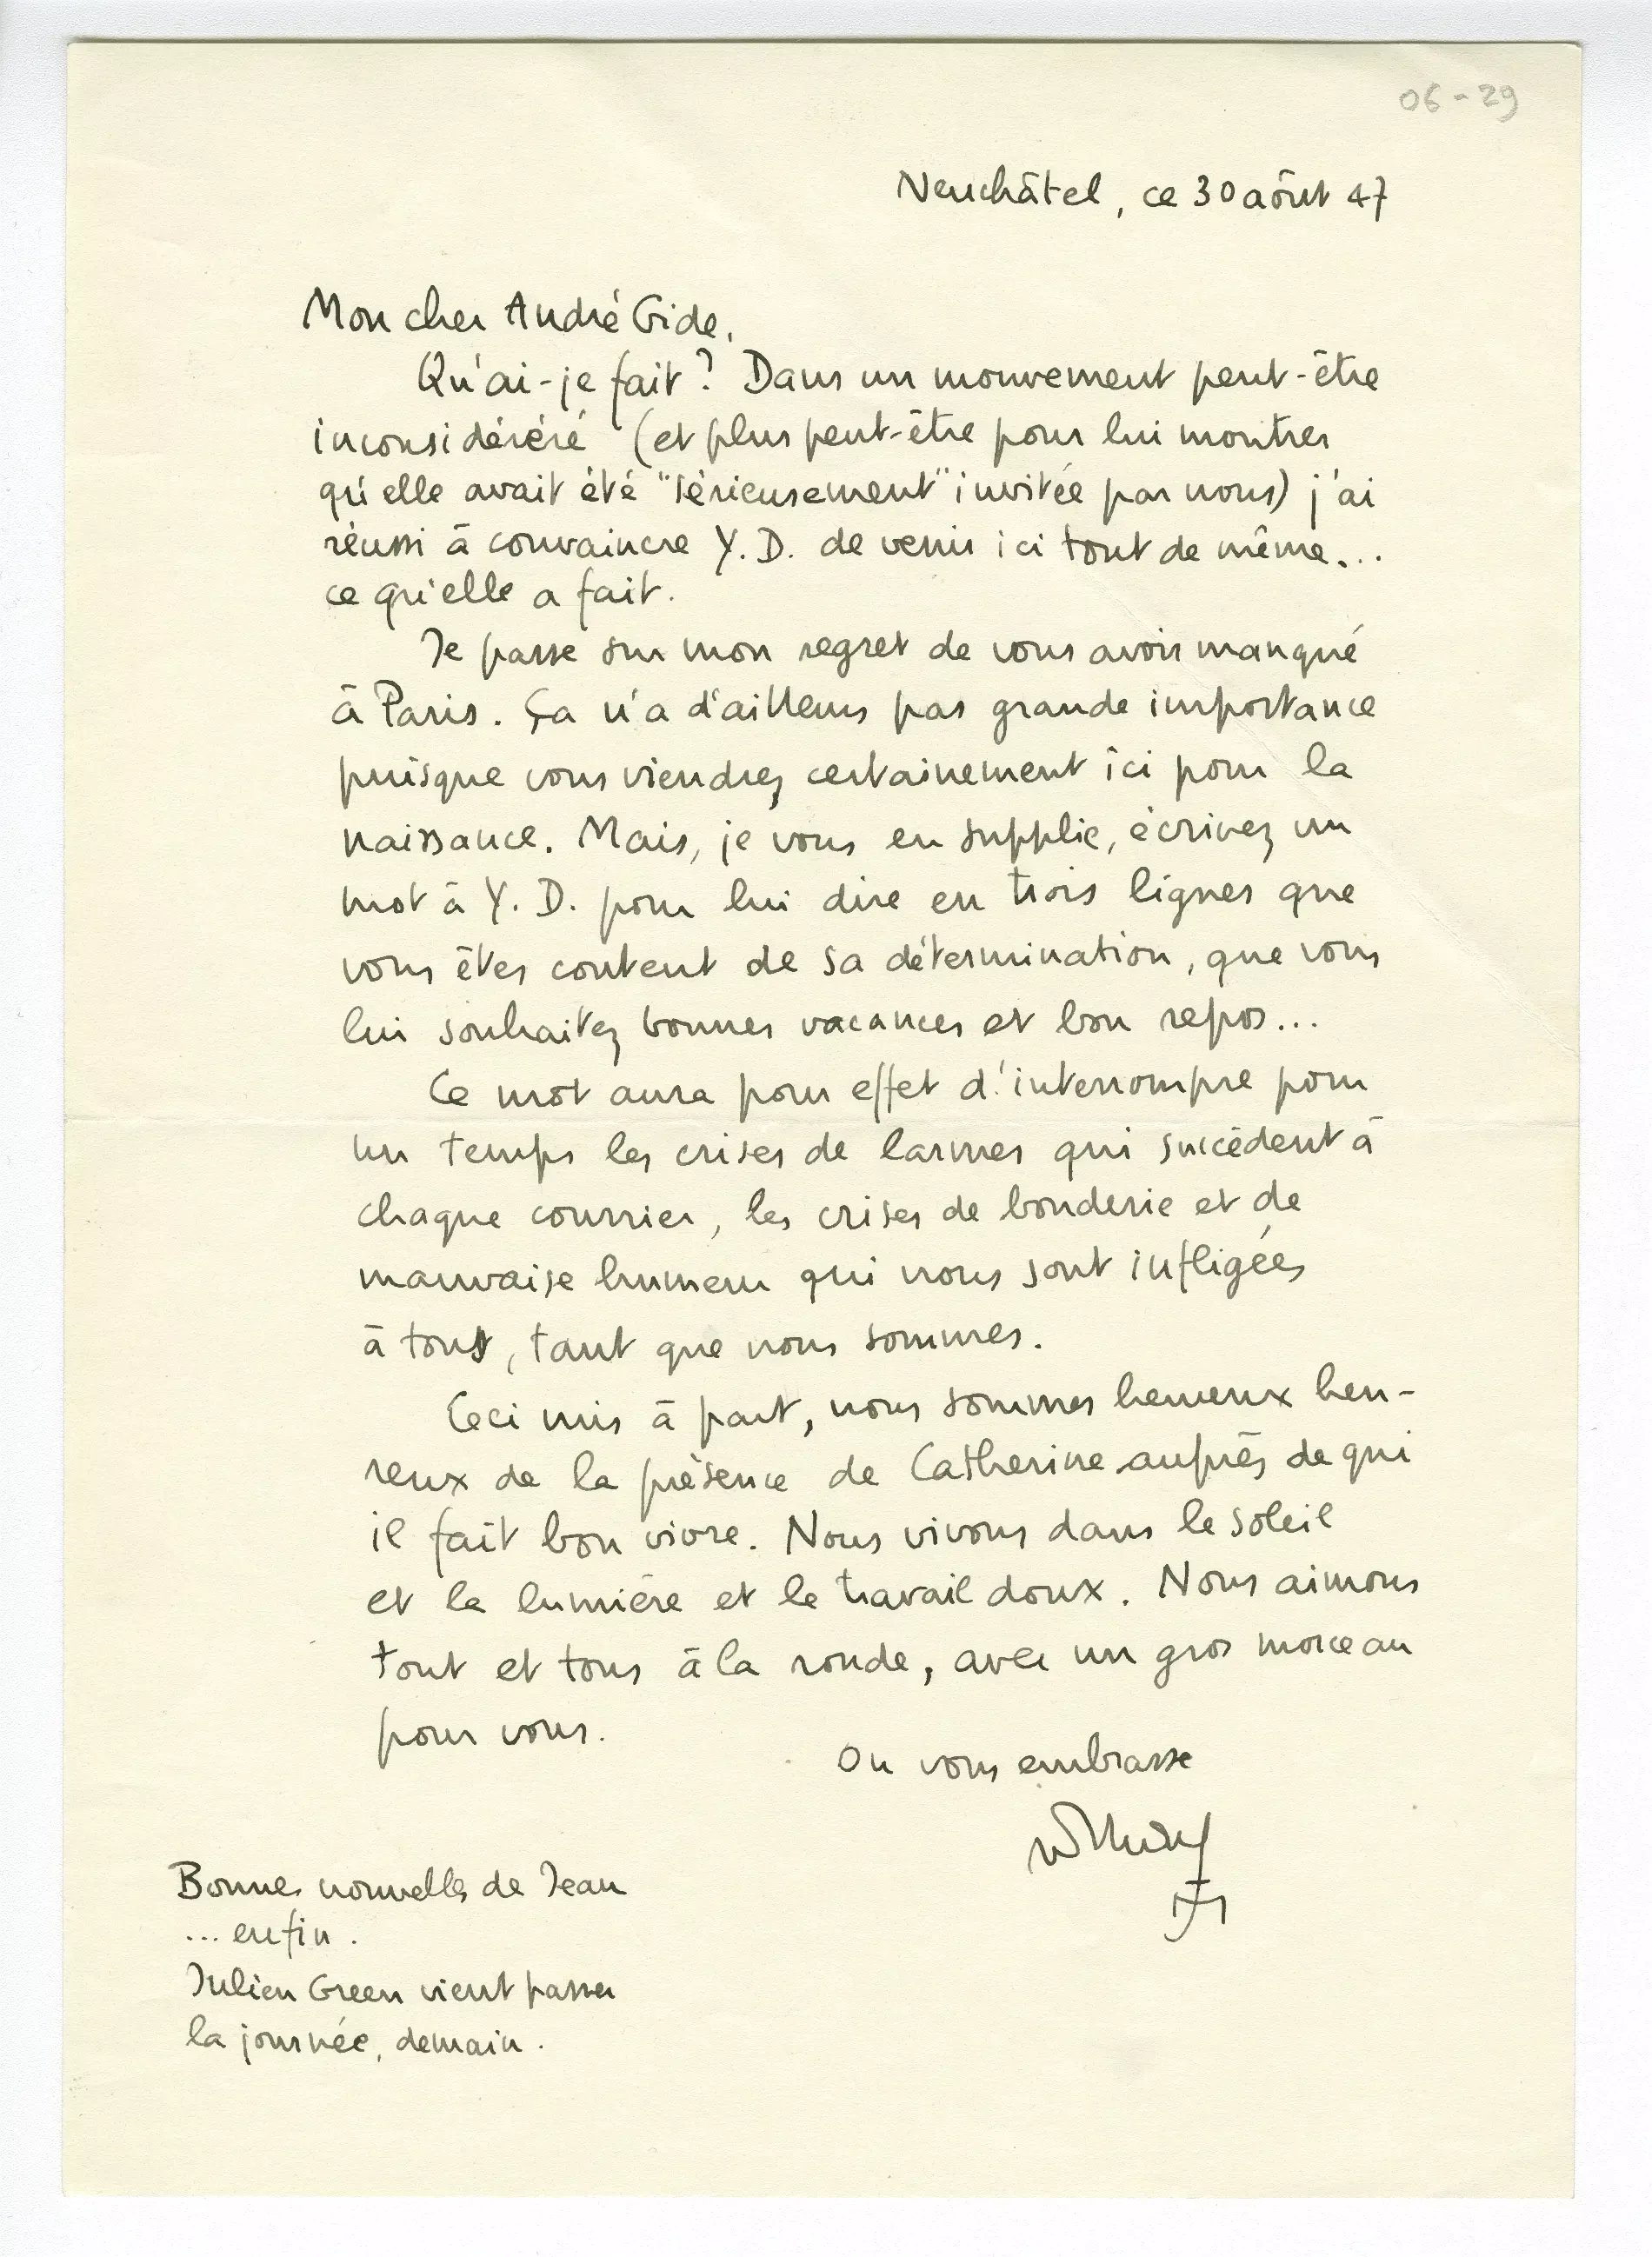 06-29
Neuchâtel, ce 30 août 47
Mon cher André Gide,
Qu'ai-je fait ? Dans un mouvement peut-être
inconsidéréré (et plus peut-être pour lui montrer
qu'elle avait été "sérieusement" invitée par nous) j'ai
réussi à convaincre Y. D. de venir ici tout de même...
ce qu'elle a fait.
Je passe sur mon regret de vous avoir manqué
à Paris. Ça n'a d'ailleurs pas grande importance
puisque vous viendrez certainement ici pour la
naissance. Mais, je vous en supplie, écrivez un
mot à Y. D. pour lui dire en trois lignes que
vous êtes content de sa détermination, que vous
lui souhaitez bonnes vacances et bon repos...
Ce mot aura pour effet d'interrompre pour
un temps les crises de larmes qui succèdent à
chaque courrier, les crises de bouderie et de
mauvaise humeur qui nous sont infligées
à tous, tant que nous sommes.
Ceci mis à part, nous sommes heureux heu-
reux de la présence de Catherine auprès de qui
il fait bon vivre. Nous vivons dans le soleil
et la lumière et le travail doux. Nous aimons
tout et tous à la ronde, avec un gros morceau
pour vous.
On vous embrasse
Bonnes nouvelles de Jean
... enfin.
Julien Green vient passer
la journée, demain.